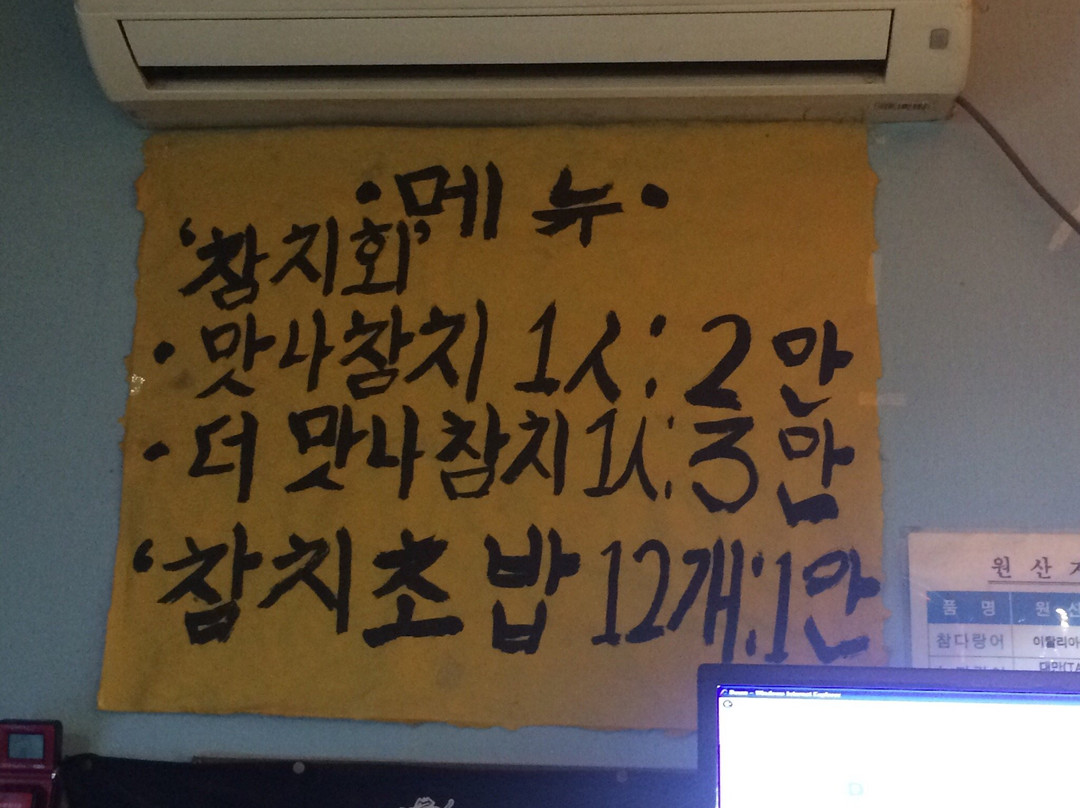 ·메 뉴·
'참치회'
·맛나참치 1人: 2만
·더 맛나참치 1人: 3만
'참치초밥 12개:1만
원 산
품 명 원 산
참다랑어 이탈리아